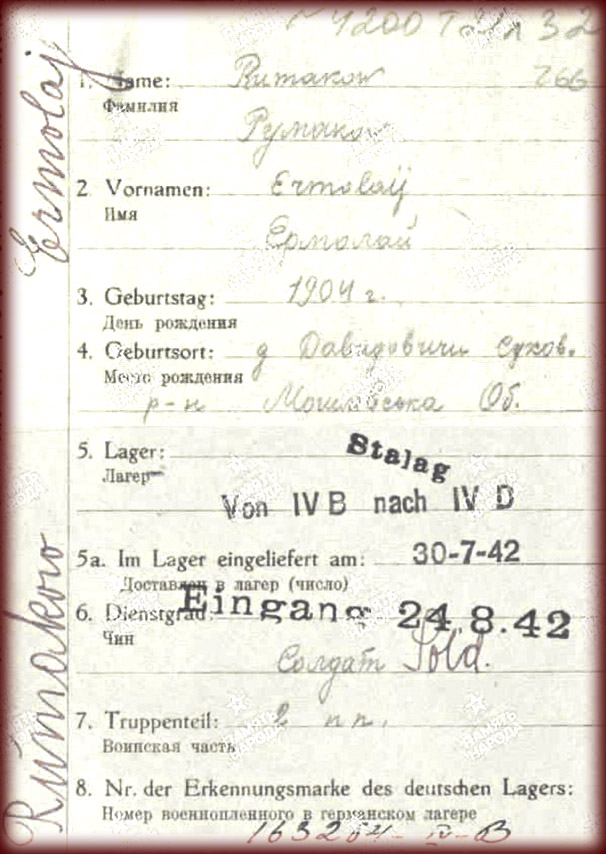 4200
1. Name: Rumakow
266
Фамилия
Румаков
2 Vornamen: Ermolaij
Имя
Ермолай
3. Geburtstag: 1904 г.
День рождения
4. Geburtsort: д Давидовичи Сухов.
Место рождения
р-н Могилівська Об.
5. Lager: Stalag
Лагерь
Von IV B nach IV D
5a. Im Lager eingeliefert am: 30-7-42
Доставлен в лагер (число)
Eingang 24.8.42
6. Dienstgrad:
Чин
Солдат Sold.
7. Truppenteil: пп.
Воинская часть
8. Nr. der Erkennungsmarke des deutschen Lagers:
Номер военнопленного в германском лагере
163204-IV-B
Ermolaj
Rumakow